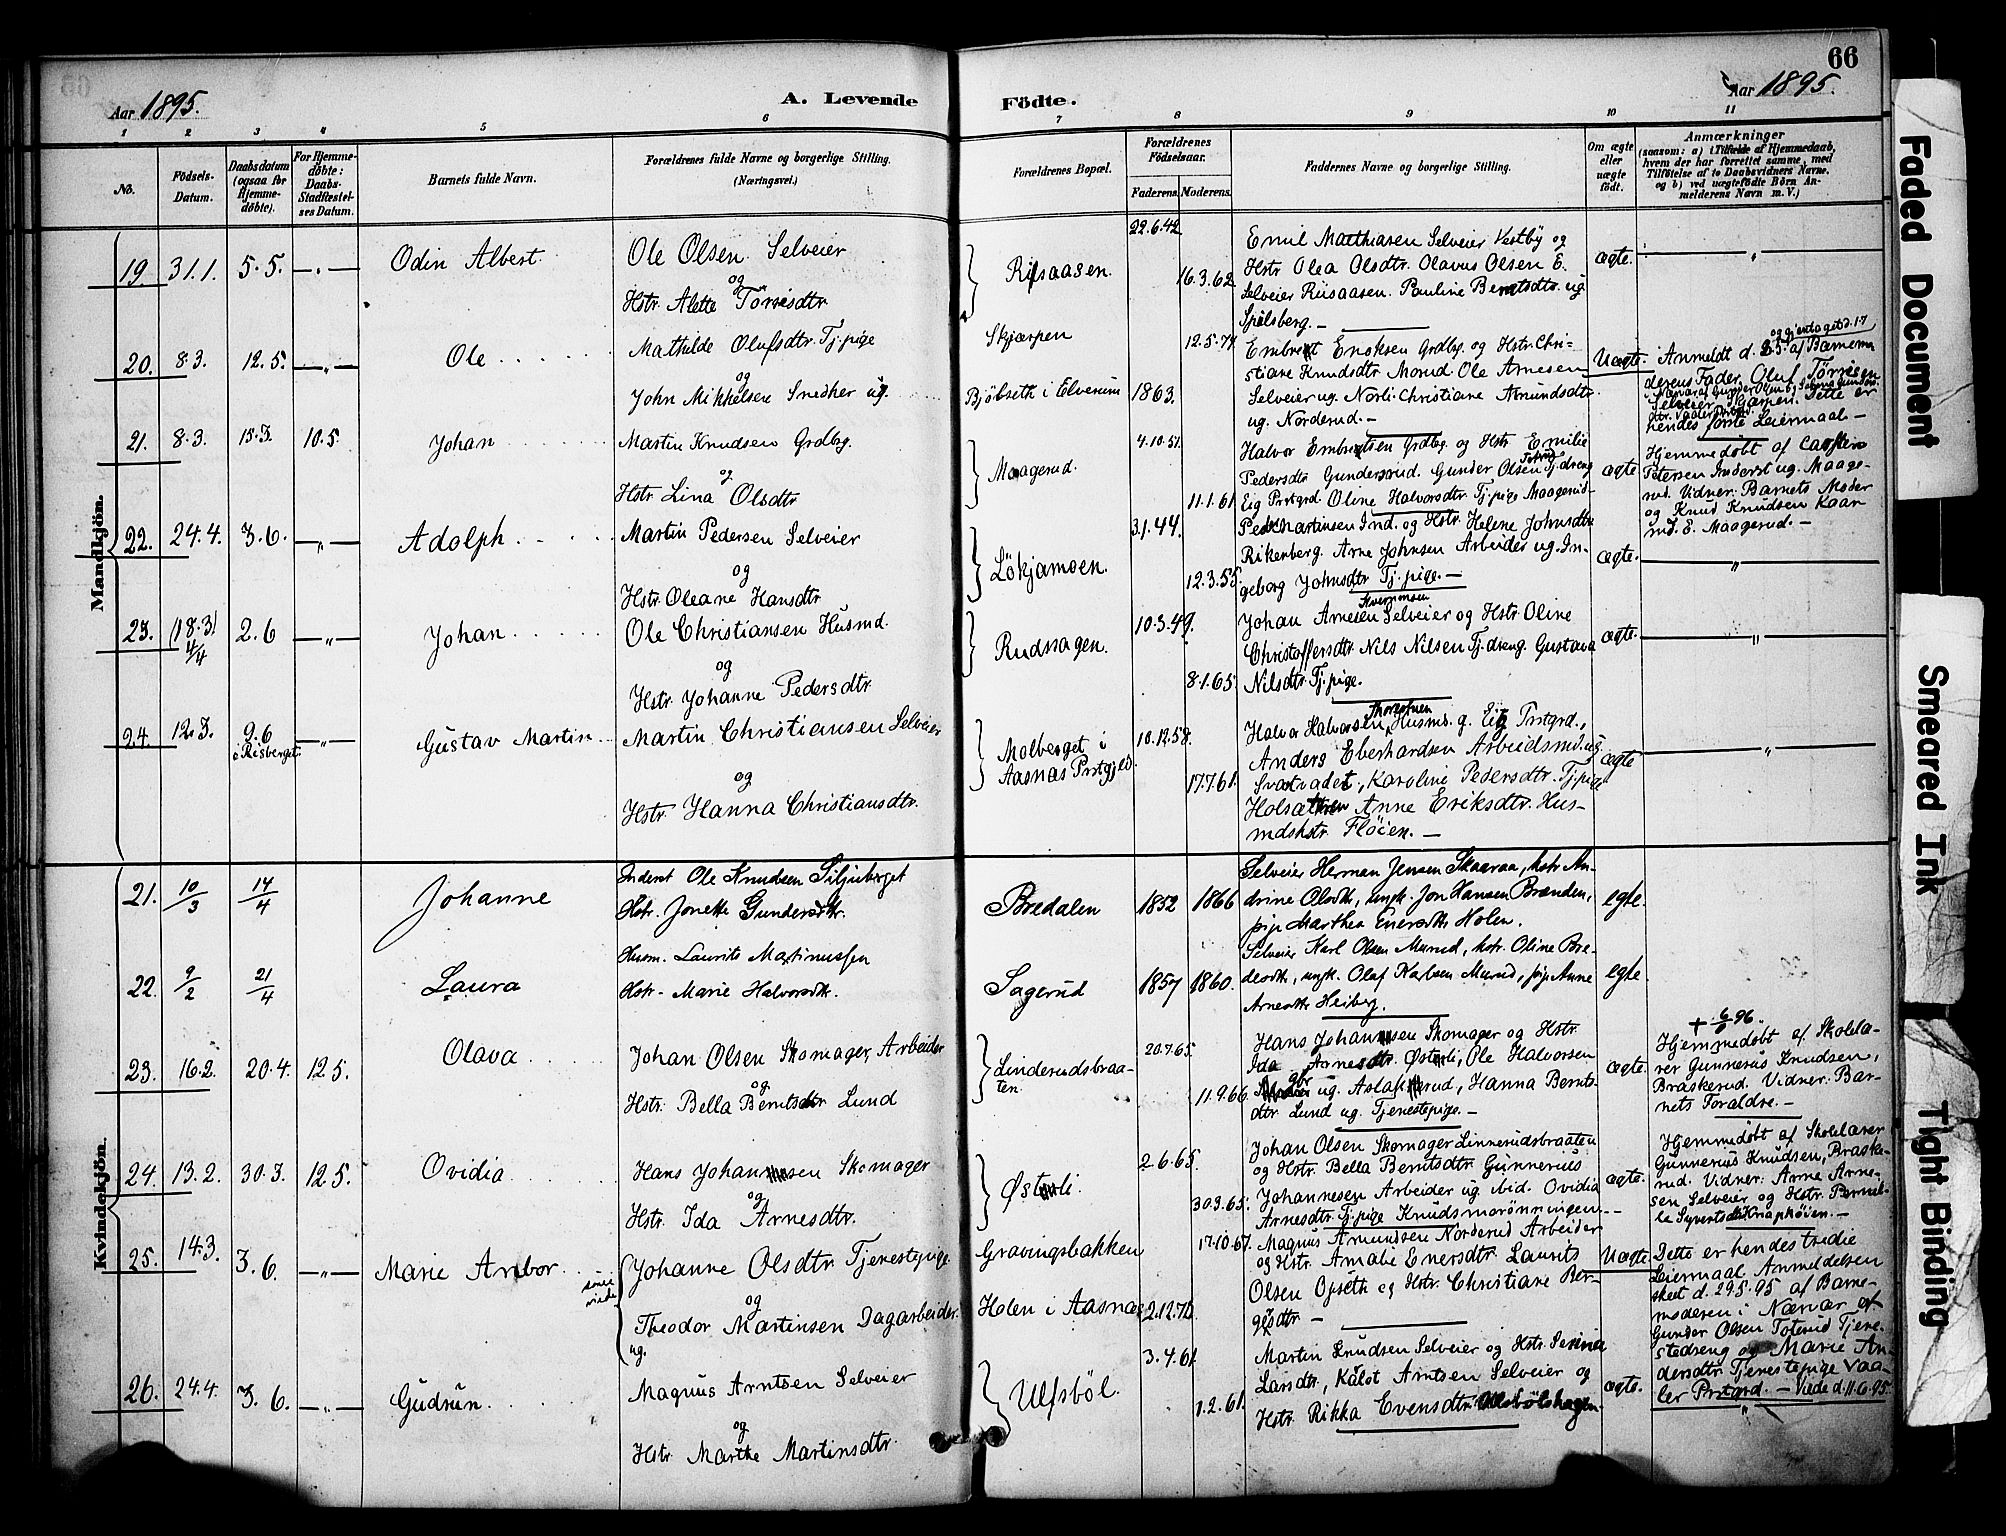 66
Aar 1895.
A. Levende Födte.
Aar 1895.
1 2 3 4 5 6 7 8 9 10 11
No.
Födsels-Datum.
Daabsdatum (ogsaa for Hjemme-döbte).
For Hjemme-döbte: Daabs-Stadfestel-ses Datum.
Barnets fulde Navn.
Forældrenes fulde Navne og borgerlige Stilling. (Næringsvei.)
Forældrenes Bopæl.
Forældrenes Födselsaar.
Faderens. Moderens.
Faddernes Navne og borgerlige Stilling.
Om ægte eller uægte födt.
Anmærkninger
(saasom: a) i Tilfælde af Hjemmedaab,
hvem der har forrettet samme, med
Tilföielse af to Daabsvidners Navne,
og b) ved uægtefödte Börn An-
melderens Navn m. V.)
Mandkjön.
19. 31.1. 5.5. —„— Odin Albert.
Ole Olsen Selveier
og
Hstr. Alette Törresdtr.
Riisaasen.
22.6.42
16.3.62.
Emil Matthiasen Selveier Vestby og
Hstr Olea Olsdtr. Olavus Olsen E.
Selveier Riisaasen. Pauline Berntsdtr. ug.
Spilsberg. —
ægte.
20. 8.3. 12.5. —„— Ole
Mathilde Olufsdtr Tj.pige
og
John Mikkelsen Snedker ug.
Skjærpen
Bjöbseth i Elverum
12.5.77.
1863.
Embret Eriksen Grdbg. og Hstr. Chri-
stiane Knudsdtr Morud Ole Arnesen
Selveier ug. Norli. Christiane Amundsdtr
ug. Norderud. —
Uægte.
Anmeldt d. 2.5. af Barnemo
derens Fader Oluf Törresen
Selveier Skjærpen. Dette er
hendes förste Leiermaal —
21. 8.3. 15.3. 10.5. Johan
Martin Knudsen Grdbg.
og
Hstr. Lina Olsdtr
Maagerud.
4.10.51.
11.1.61.
Halvor Embretsen Grdbg. og Hstr Emilie
Pedersdtr Gundersrud. Gunder Olsen Tj.dreng
Eig Prstgrd. Oline Halvorsdtr. Tj.pige Maagerud.
ægte
Hjemmedöbt af Carsten
Petersen Inderst ug. Maage-
rud. Vidner: Barnets Moder
og Knud Knudsen Kaar
md. E. Maagerud. —
22. 24.4. 3.6. —„— Adolph
Martin Pedersen Selveier
og
Hstr. Oleane Hansdtr
Lökjamoen.
3.1.44.
12.3.55.
Peder Martinsen Ind. og Hstr. Helene Johnsdtr
Rikenberg. Arne Johnsen Arbeider ug. In-
geborg Johnsdtr Tj.pige. —
ægte.
23. (18.3) 4/4 2.6 —„— Johan
Ole Christiansen Husmd.
og
Hstr. Johanne Pedersdtr.
Rudshagen.
10.3.49.
8.1.65.
Johan Arnesen Selveier og Hstr Oline
Christoffersdtr. Nils Nilsen Tj.dreng. Gustava
Nilsdtr. Tj.pige.
ægte.
24. 12.3. 9.6 i Risberget —„— Gustav Martin
Martin Christiansen Selveier
og
Hstr. Hanna Christiansdtr.
Malberget i
Aasnas Prstgjeld.
10.12.58.
17.7.61.
Halvor Halvorsen Husmd. g. Eig Prstgrd.,
Anders Eberhardsen Arbeidsmd. ug
Svartvadet, Karoline Pedersdtr. Tj.pige
Anne Eriksdtr. Hus-
mdshstr Flöien. —
ægte
Kvindekjön.
21. 10/3 14/4 Johanne
Inderst Ole Knudsen Siljuberget
Hstr. Jonette Gundersdtr.
Bredalen
1852 1866
Selveier Herman Jensen Skaaraa, hstr. An-
drine Olsdtr, ungk. Jon Hansen Brænden,
pip. Marthea Enersdtr. Holen.
egte.
22. 9/2 21/4 Laura
Husm. Laurits Martinussen
Hstr. Marie Halvorsdtr.
Sagerud
1857 1860.
Selveier Karl Olsen Murud, hstr. Oline Pe-
dersdtr, ungk. Olaf Karlsen Murud, pip. Anne
Arnesdtr Heiberg.
egte
23. 16.2. 20.4. 12.5. Olava
Johan Olsen Skomager, Arbeider
og
Hstr. Bella Berntsdtr Lund
Linderudsbraa-
ten.
20.7.65.
11.9.66.
Hans Johannesen Skomager og Hstr.
Ida Arnesdtr. Østerli, Ole Halvorsen
ug. Aslakrud, Hanna Bernts-
dtr. Lund ug. Tjenestepige. —
ægte.
Hjemmedöbt af Skolelæ-
rer Gunnerus Knudsen,
Braskerud. Vidner: Bar-
nets Forældre. —
24. 13.2. 30.3. 12.5. Ovidia
Hans Johannesen Skomager
og
Hstr. Ida Arnesdtr.
Østerli.
2.6.65.
30.9.65.
Johan Olsen Skomager Linnerudsbraaten
og Hstr. Bella Berntsdtr. Gunnerius
Johannesen Arbeider ug. ibid. Ovidia
Arnesdtr. Tj.pige Knudsmorönningen.
ægte.
Hjemmedöbt af Skolelærer
Gunnerius Knudsen, Braske-
rud. Vidner: Arne Arne-
sen Selveier og Hstr. Pernil-
le Syvertsdtr Knaphöien. —
25. 14.3. 3.6. —„— Marie Arnbor
Johanne Olsdtr. Tjenestepige
og
Theodor Martinsen Dagarbeider
ug.
Gravingsbakken
Holen i Aasnas
17.10.67.
2.12.70
Magnus Amundsen Norderud Arbeider
og Hstr. Amalie Enersdtr. Laurits
Olsen Opseth og Hstr. Christiane Ber-
gesdtr. —
Uægte.
Dette er hendes tredie
Leiermaal. Anmeldelsen
skeet d. 29.5.95 af Barne-
moderen i Nærvær af
Gunder Olsen Toterud Tjene-
stedreng og Marie An-
dersdtr. Tjenestepige Vaa-
ler Prstgrd. — Viede d. 11.6.95.
26. 24.4. 3.6. —„— Gudrun
Magnus Arntsen Selveier
og
Hstr. Marthe Martinsdtr.
Ulfsböl.
3.4.61.
1.2.61.
Martin Knudsen Selveier og Hstr. Serina
Larsdtr., Kalot Arntsen Selveier og
Hstr. Rikka Evensdtr. Ulfsbölshagen.
ægte.
Faded Document
Smeared Ink
Tight Binding